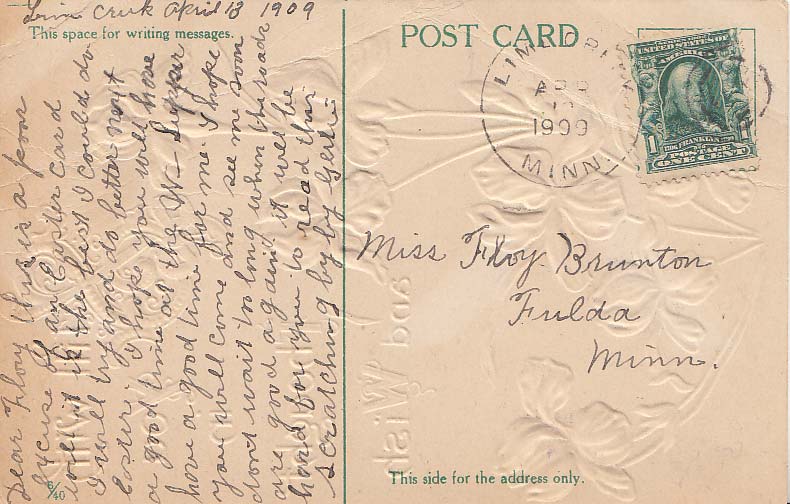 Lime Creek April 13 1909
This space for writing messages.
Dear Floy this is a poor
excuse of an Easter card
but it is the best I could do
I will try and do better next
Easter. I hope you will have
a good time at the W- Supper
have a good time for me. I hope
you will come and see me soon
don't wait too long when the roads
are good again. it will be
hard for you to read this
scratching by by Gertie
6/40
POST CARD
LIME CREEK
APR
1909
MINN.
UNITED STATES OF
AMERICA
1706 FRANKLIN 1790
1 POSTAGE 1
ONE CENT
Miss Floy Brunton
Fulda
Minn.
This side for the address only.